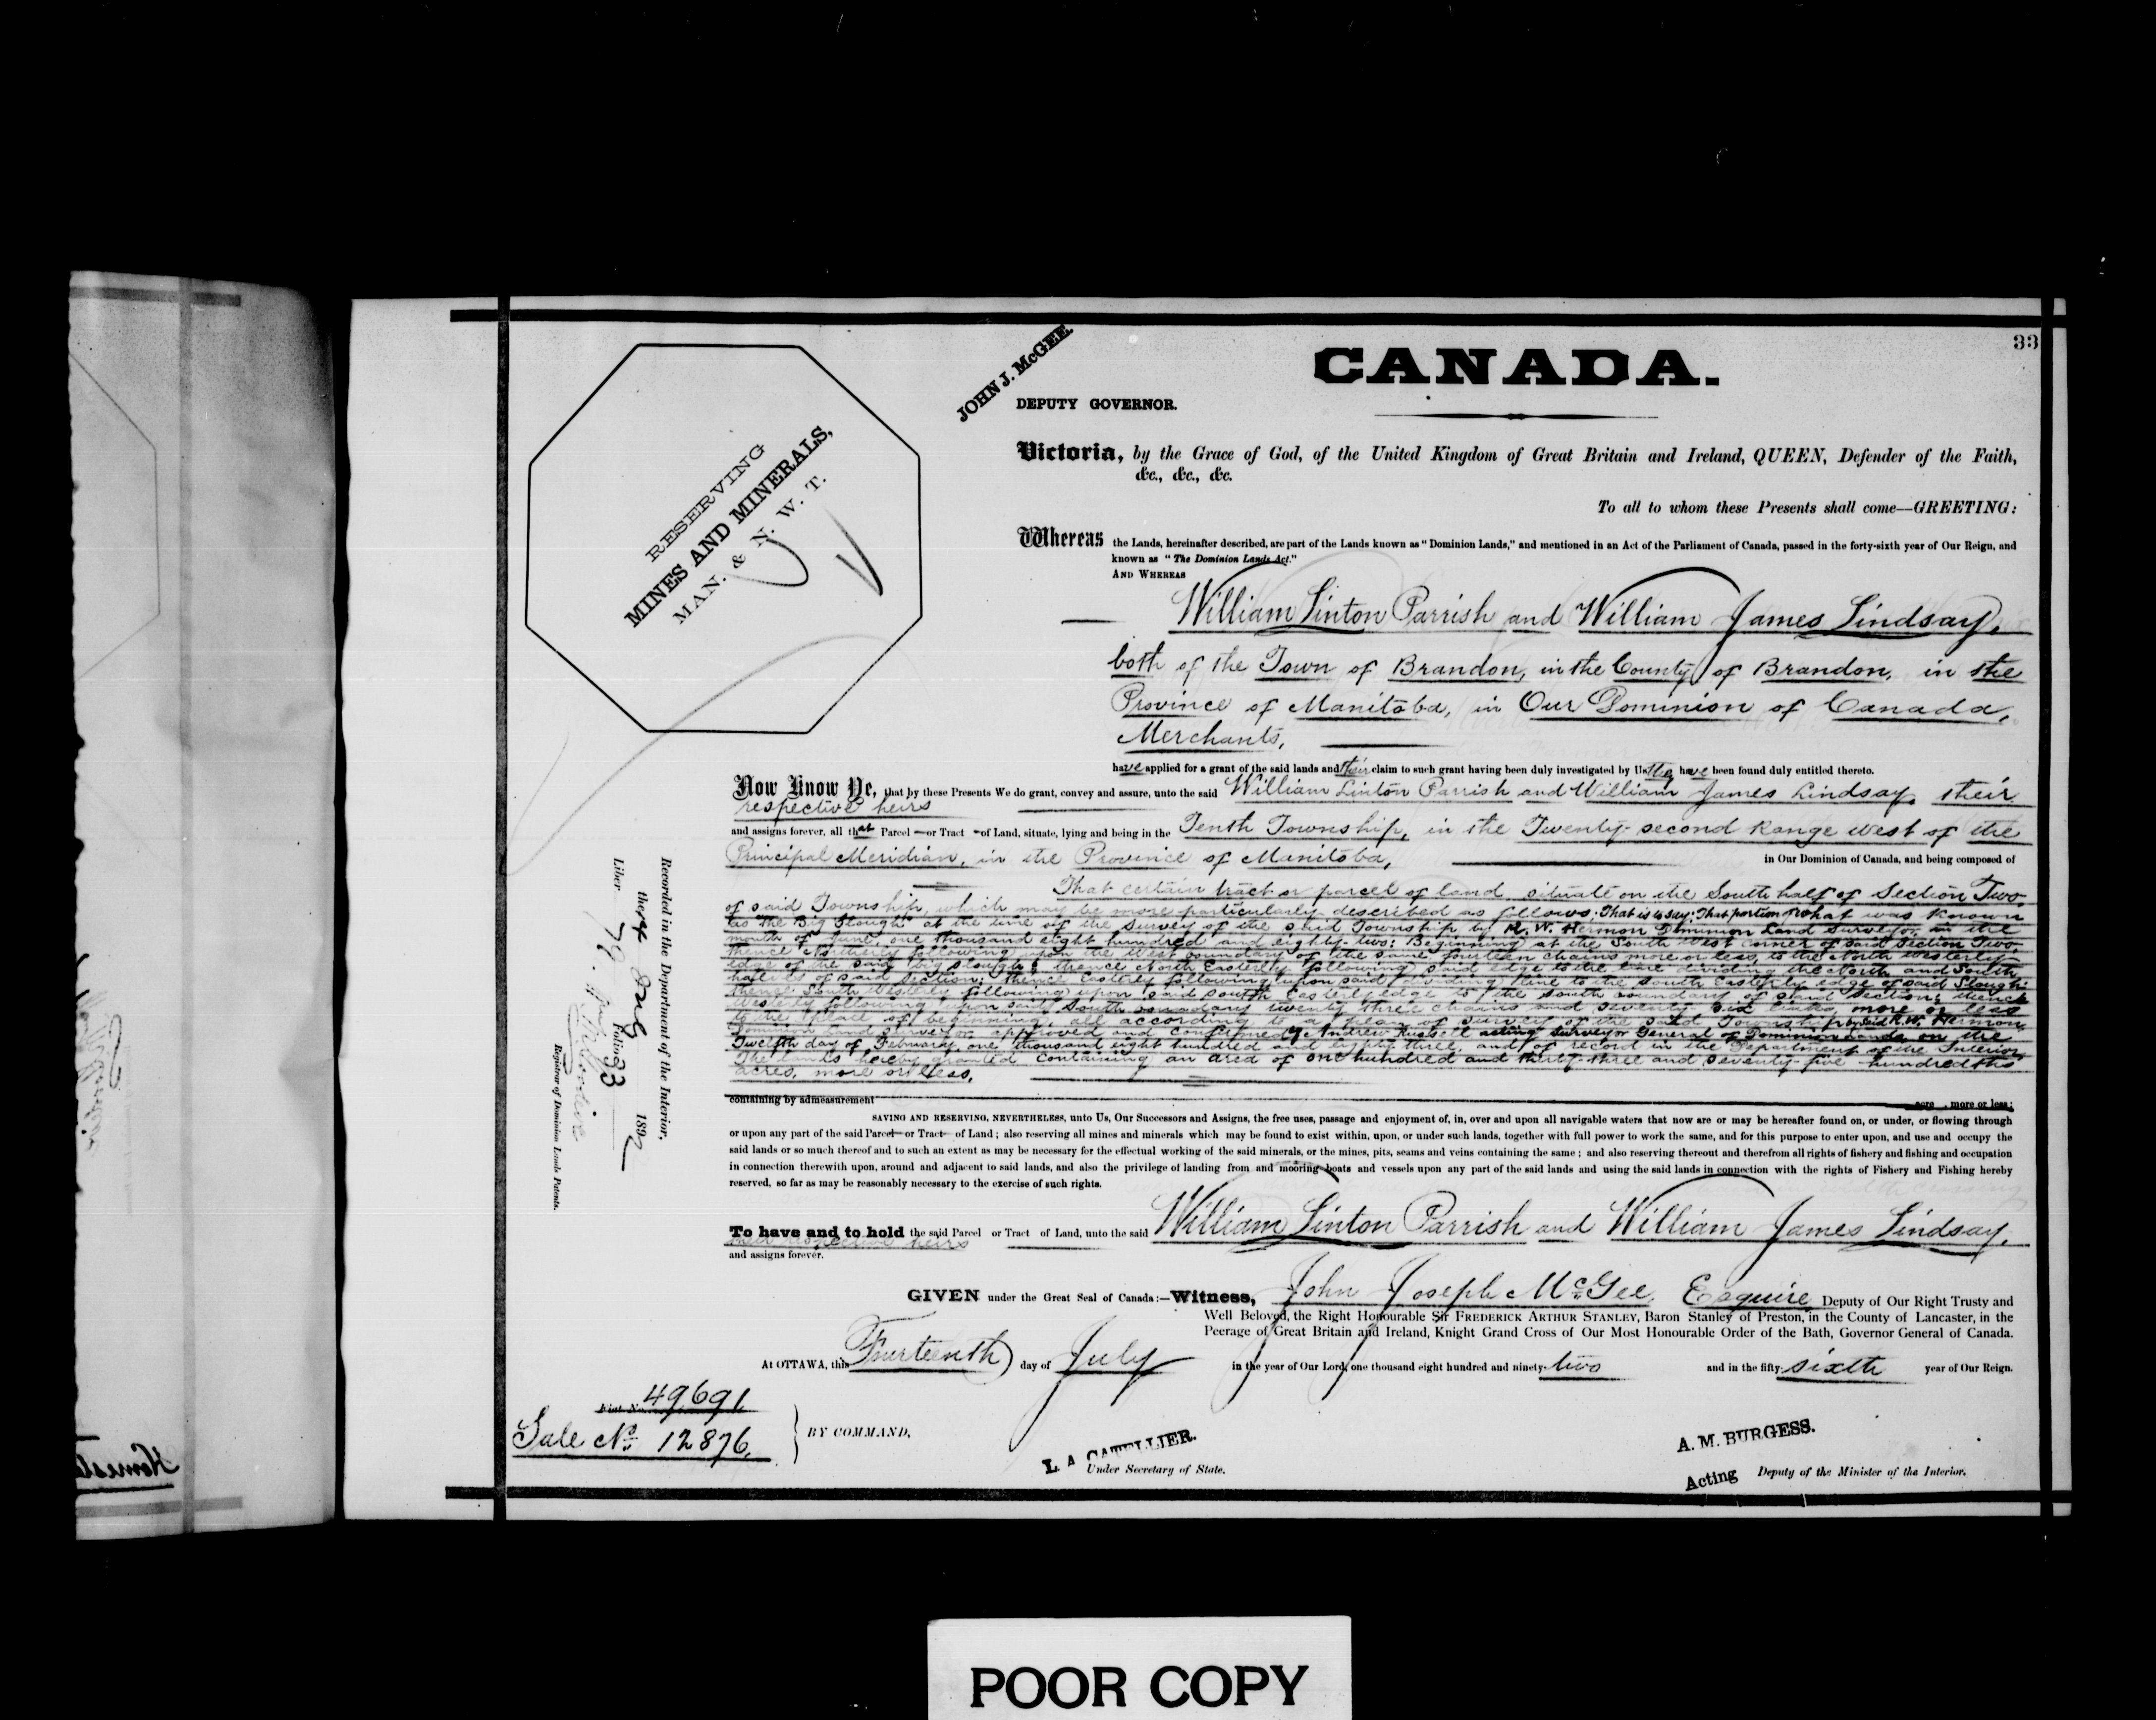 33
CANADA.
JOHN J. McGEE.
DEPUTY GOVERNOR.
RESERVING
MINES AND MINERALS,
MAN. & N. W. T.
Victoria, by the Grace of God, of the United Kingdom of Great Britain and Ireland, QUEEN, Defender of the Faith,
&c., &c., &c.
To all to whom these Presents shall come—GREETING:
Whereas the Lands, hereinafter described, are part of the Lands known as "Dominion Lands," and mentioned in an Act of the Parliament of Canada, passed in the forty-sixth year of Our Reign, and
known as "The Dominion Lands Act."
AND WHEREAS
William Linton Parrish and William James Lindsay,
both of the Town of Brandon, in the County of Brandon, in the
Province of Manitoba, in Our Dominion of Canada,
Merchants,
have applied for a grant of the said lands and their claim to such grant having been duly investigated by Us they have been found duly entitled thereto.
Now Know Ye, that by these Presents We do grant, convey and assure, unto the said William Linton Parrish and William James Lindsay, their
respective heirs
and assigns forever, all that Parcel or Tract of Land, situate, lying and being in the Tenth Township, in the Twenty-second Range West of the
Principal Meridian, in the Province of Manitoba, in Our Dominion of Canada, and being composed of
That certain tract or parcel of land situate on the South half of Section Two
of said Township, which may be more particularly described as follows: That is to say: That portion of what was known
as the Big Slough at the time of the survey of the said Township by R. W. Hermon Dominion Land Surveyor, in the
month of June, one thousand eight hundred and eighty-two: Beginning at the South West corner of said Section Two
thence Northerly following upon the West boundary of the same fourteen chains more or less, to the North Westerly
edge of the said big slough; thence North Easterly following said edge to the line dividing the North and South
halves of said Section; thence Easterly following upon said dividing line to the South Easterly edge of said Slough:
thence South Westerly following upon said South Easterly edge to the South boundary of said Section; thence
Westerly following upon said South boundary twenty three chains and seventy six links, more or less
to the place of beginning, all according to a plan of survey of the said Township by said R. W. Hermon,
Dominion Land Surveyor approved and confirmed by Andrew Russell acting Surveyor General of Dominion Lands, on the
Twelfth day of February, one thousand eight hundred and eighty three, and of record in the Department of the Interior,
The lands hereby granted containing an area of one hundred and thirty-three and seventy-five hundredths
acres, more or less,
containing by admeasurement acre , more or less;
SAVING AND RESERVING, NEVERTHELESS, unto Us, Our Successors and Assigns, the free uses, passage and enjoyment of, in, over and upon all navigable waters that now are or may be hereafter found on, or under, or flowing through
or upon any part of the said Parcel or Tract of Land; also reserving all mines and minerals which may be found to exist within, upon, or under such lands, together with full power to work the same, and for this purpose to enter upon, and use and occupy the
said lands or so much thereof and to such an extent as may be necessary for the effectual working of the said minerals, or the mines, pits, seams and veins containing the same; and also reserving thereout and therefrom all rights of fishery and fishing and occupation
in connection therewith upon, around and adjacent to said lands, and also the privilege of landing from and mooring boats and vessels upon any part of the said lands and using the said lands in connection with the rights of Fishery and Fishing hereby
reserved, so far as may be reasonably necessary to the exercise of such rights.
To have and to hold the said Parcel or Tract of Land, unto the said William Linton Parrish and William James Lindsay,
their respective heirs
and assigns forever.
GIVEN under the Great Seal of Canada:—Witness, John Joseph McGee, Esquire, Deputy of Our Right Trusty and
Well Beloved, the Right Honourable Sir FREDERICK ARTHUR STANLEY, Baron Stanley of Preston, in the County of Lancaster, in the
Peerage of Great Britain and Ireland, Knight Grand Cross of Our Most Honourable Order of the Bath, Governor General of Canada.
At OTTAWA, this Fourteenth day of July in the year of Our Lord, one thousand eight hundred and ninety-two and in the fifty-sixth year of Our Reign.
49691
Sale No. 12876.
BY COMMAND,
L. A. CATELLIER.
Under Secretary of State.
A. M. BURGESS.
Acting Deputy of the Minister of the Interior.
Recorded in the Department of the Interior,
the July 1892
Liber 79. Folio 33
Registrar of Dominion Lands Patents.
POOR COPY